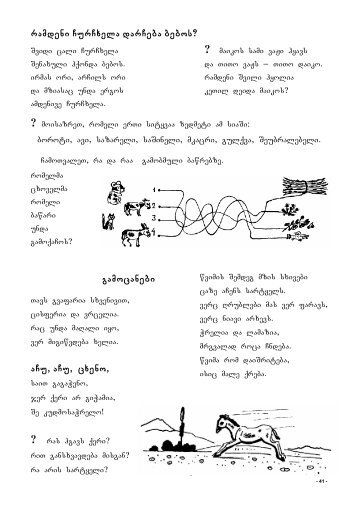 რამდენი ჩურჩხელა დარჩება ბებოს?
შვიდი ცალი ჩურჩხელა
შენახული ჰქონდა ბებოს.
ირმას ორი, არჩილს ორი
და მზიასაც უნდა ერგოს
ამდენივე ჩურჩხელა.
? მაიკოს სამი ვაჟი ჰყავს
და თითო ვაჟს – თითო დაიკო.
რამდენი შვილი ჰყოლია
კეთილ დეიდა მაიკოს?
? მოისაზრეთ, რომელი ერთი სიტყვაა ზედმეტი ამ სიაში:
ბოროტი, ავი, საზარელი, საშინელი, მკაცრი, გულქვა, შეუბრალებელი.
ჩამოთვალეთ, რა და რაა გამობმული ბაწრებზე.
რომელმა
ცხოველმა
რომელი
ბაწარი
უნდა
გამოქაჩოს?
1
2
3
4
გამოცანები
თავს გვაფარია სხვენივით,
ცისფერია და ვრცელია.
რაც უნდა მაღალი იყო,
ვერ მიგიწვდება ხელია.
წვიმის შემდეგ მზის სხივები
ცაზე აჩენს სარტყელს.
ვერც ღრუბლები მას ვერ ფარავს,
ვერც ნიავი არხევს.
ჭრელია და ლამაზია,
მრგვალად როცა ჩნდება.
წვიმა რომ დაიშრიტება,
ისიც მალე ქრება.
აჩუ, აჩუ, ცხენო,
საით გაგაჭენო,
ჯერ ქერი არ გიჭამია,
შე კუდმოსაჭრელო!
? რას ჰგავს ქერი?
რით განსხვავდება მისგან?
რა არის სარტყელი?
-41-